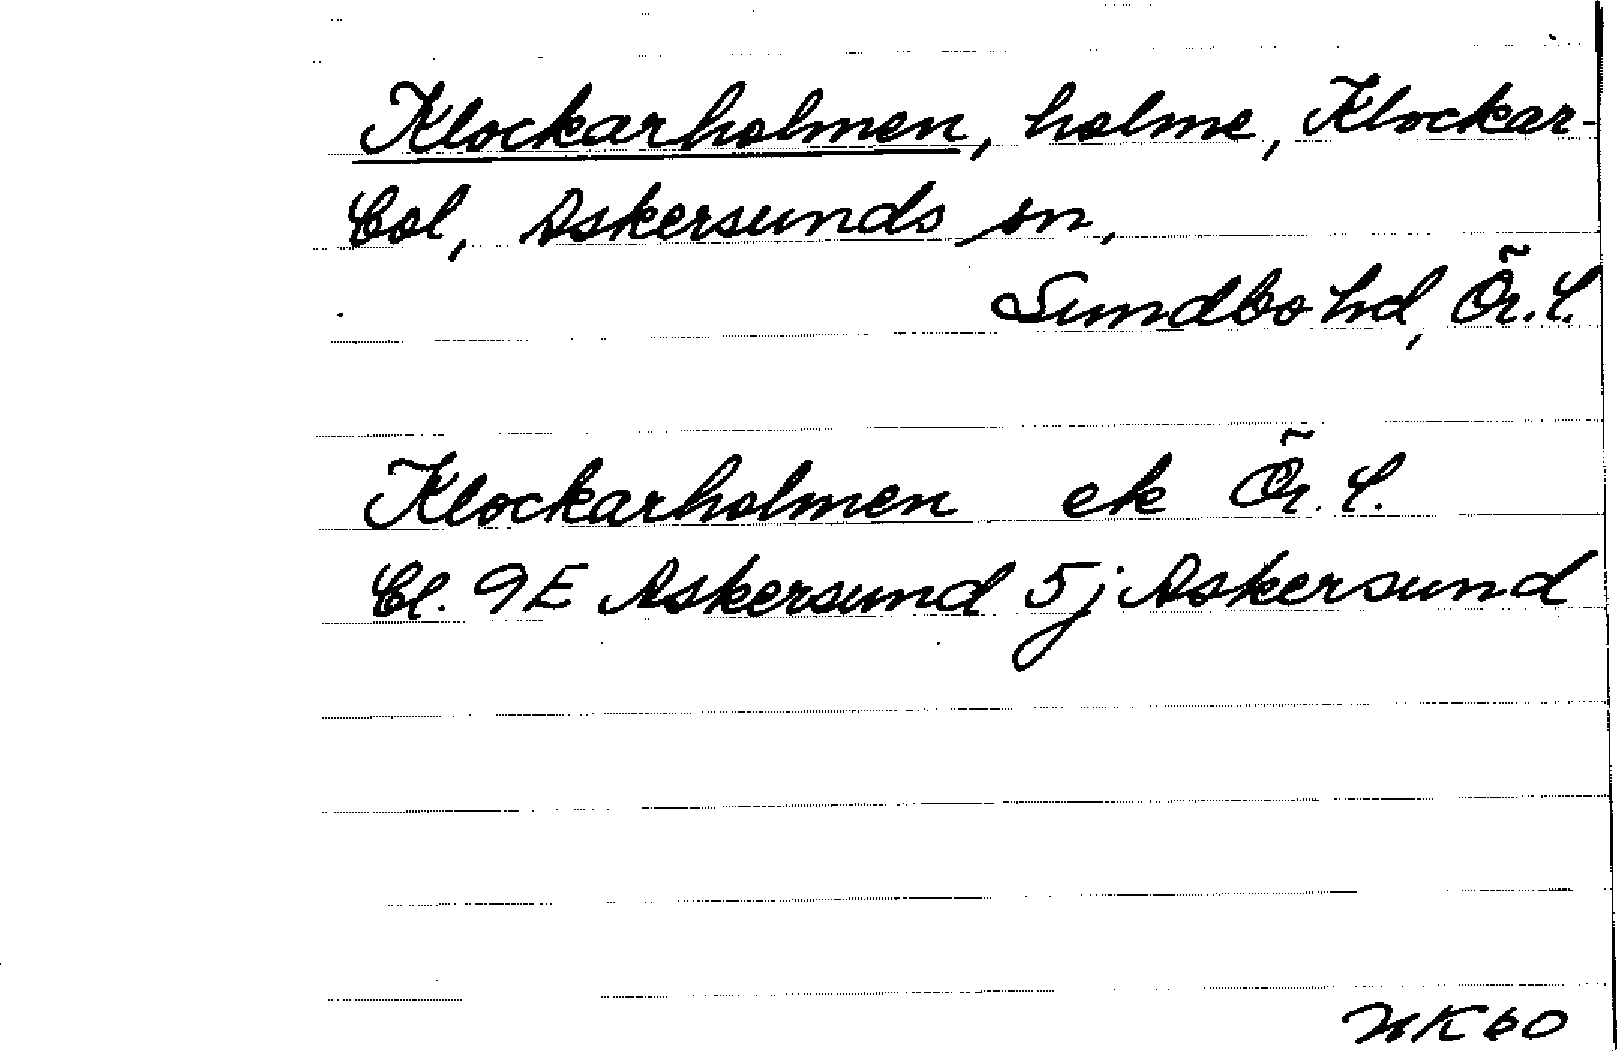 Klockarholmen, holme, Klockar-
bol, Askersunds sn,
Sundbo hd, Ör. l.
Klockarholmen ek Ör. l.
Bl. 9E Askersund 5j Askersund